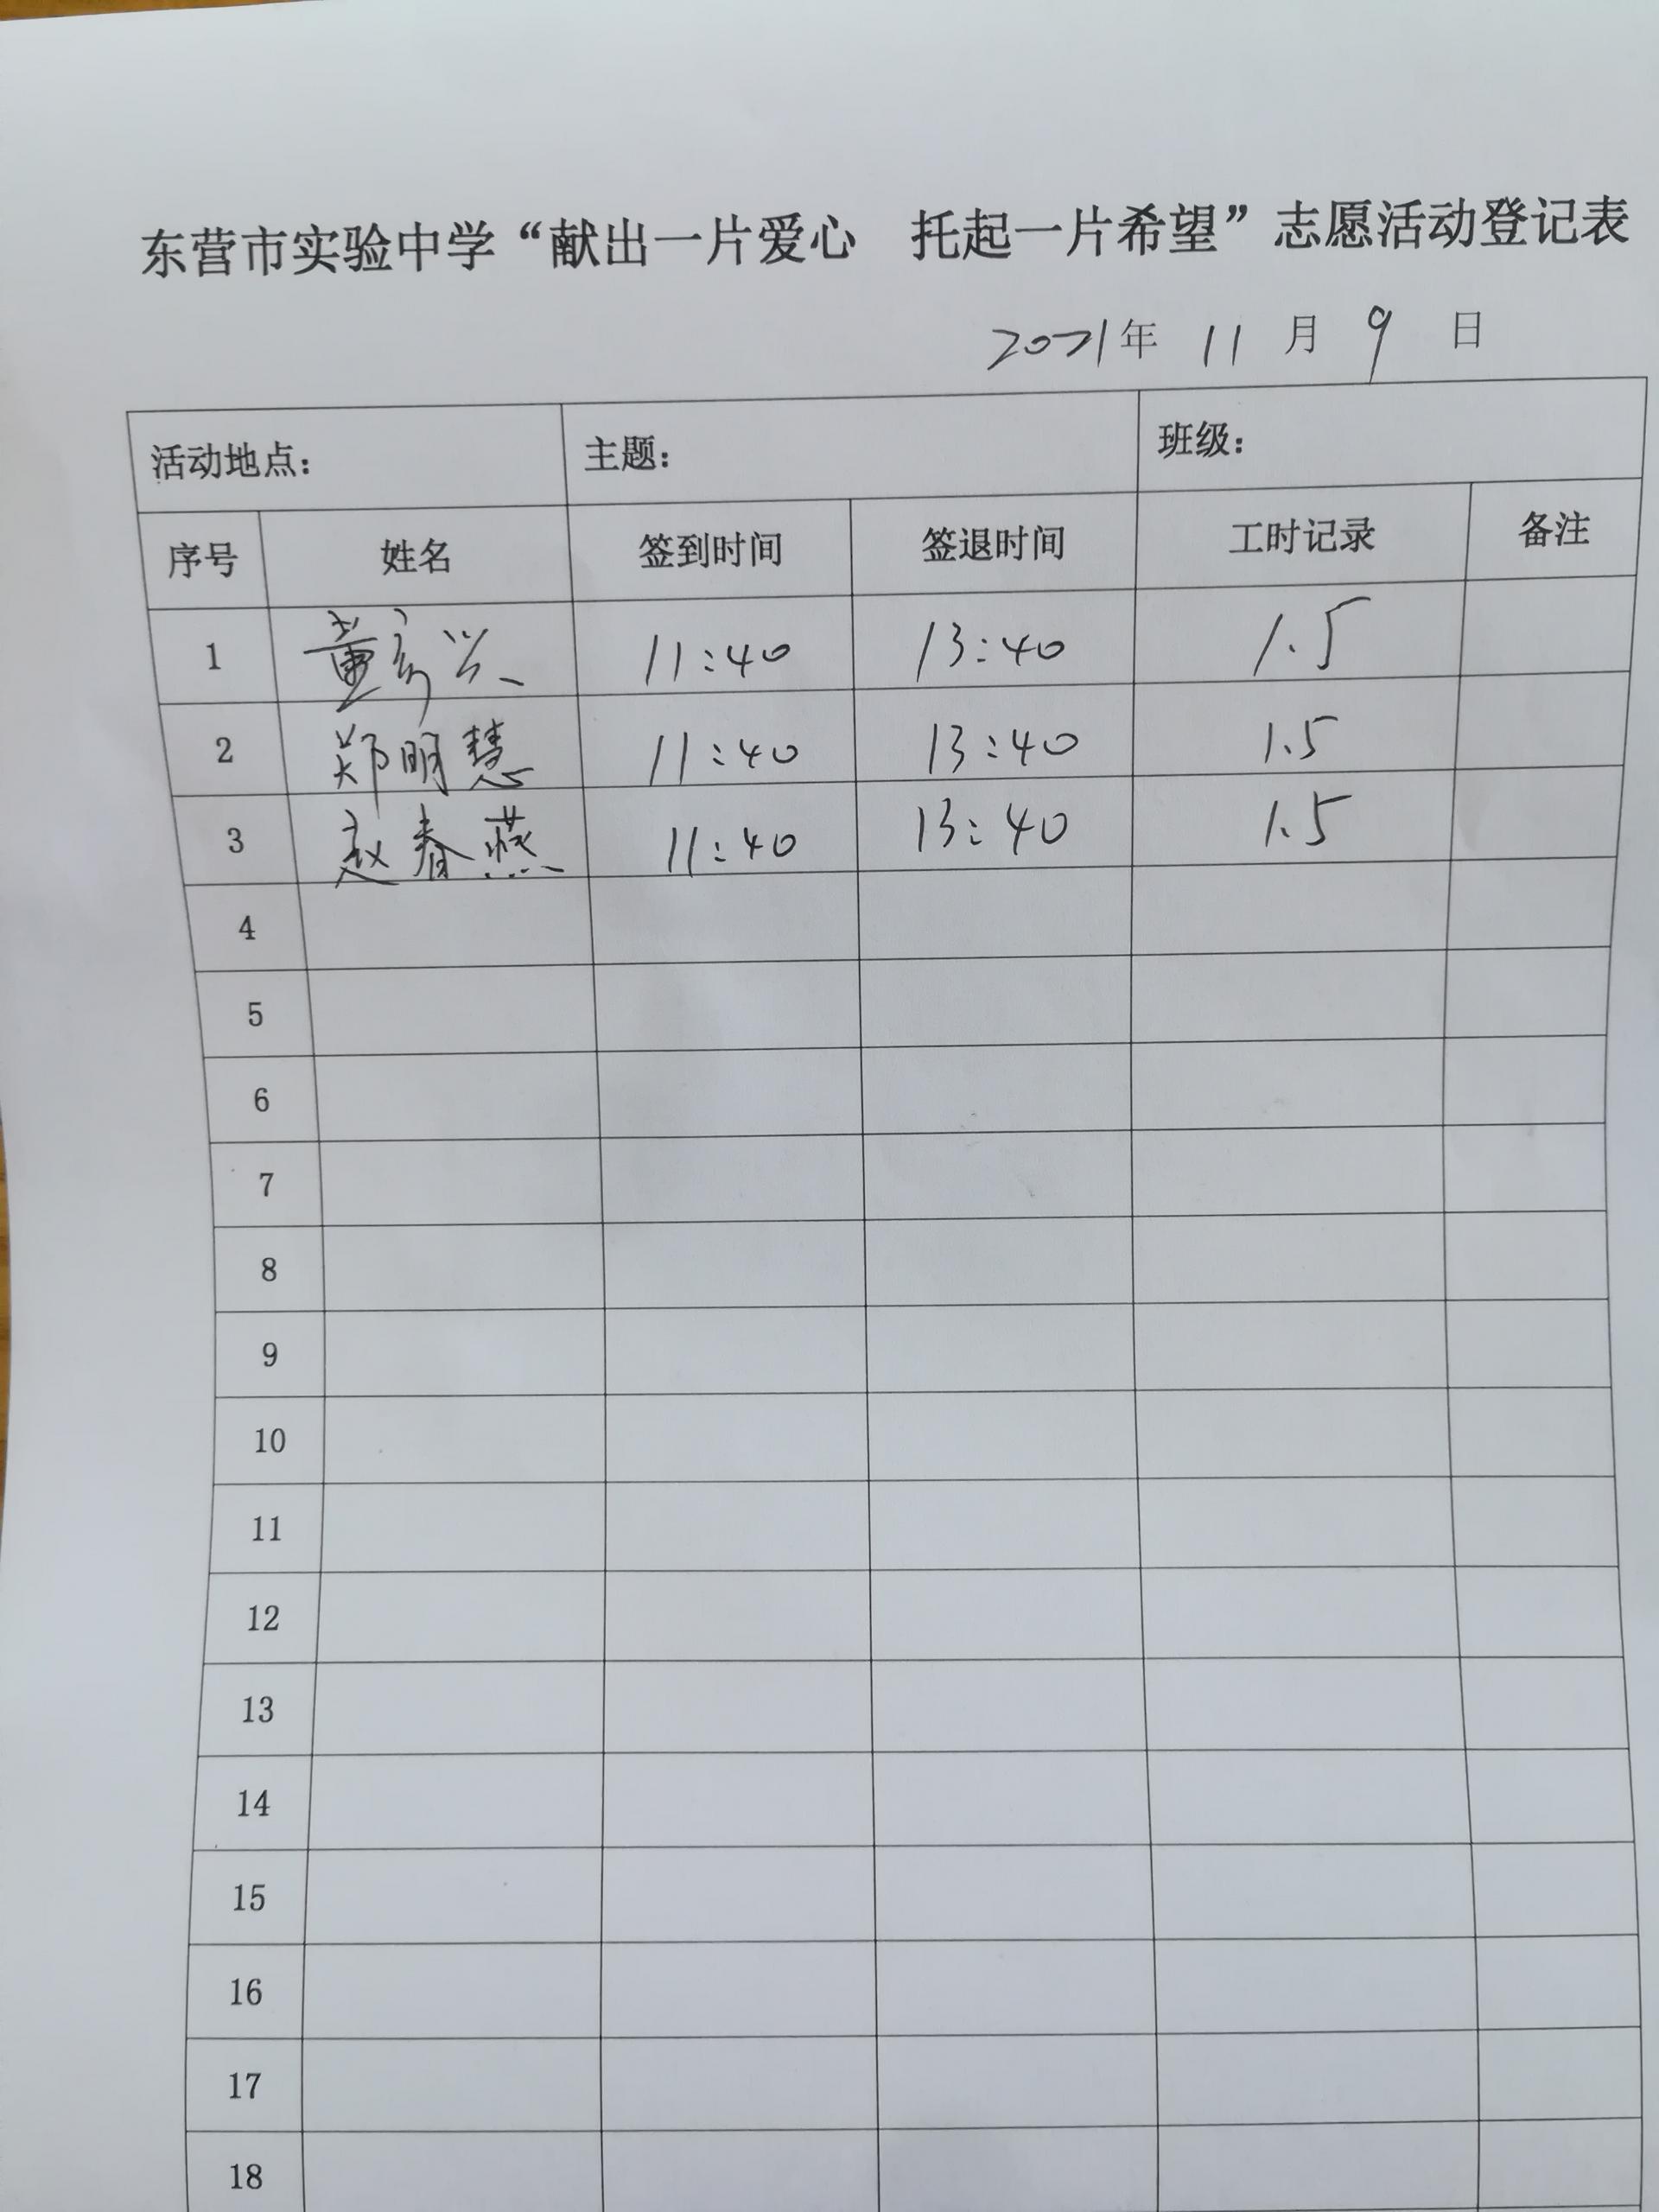 东营市实验中学“献出一片爱心 托起一片希望”志愿活动登记表
2021年 11 月 9 日
活动地点： 主题： 班级：
序号 姓名 签到时间 签退时间 工时记录 备注
1 董 兴 11:40 13:40 1.5
2 郑明慧 11:40 13:40 1.5
3 赵春燕 11:40 13:40 1.5
4
5
6
7
8
9
10
11
12
13
14
15
16
17
18